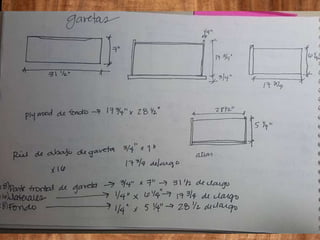 gavetas
7"
31 1/2"
1/4"
17 3/4"
3/4"
17 3/4
28 1/2"
5 1/4"
atras
Plywood de fondo → 17 3/4" x 28 1/2"
Riel de abajo de gaveta 3/4" x 1"
x16 17 3/4 de largo
Parte frontal de gaveta → 3/4" x 7" → 31 1/2 de largo
laterales → 1/4" x 6 1/4" → 17 3/4 de largo
Fondo → 1/4" x 5 1/4" → 28 1/2 de largo